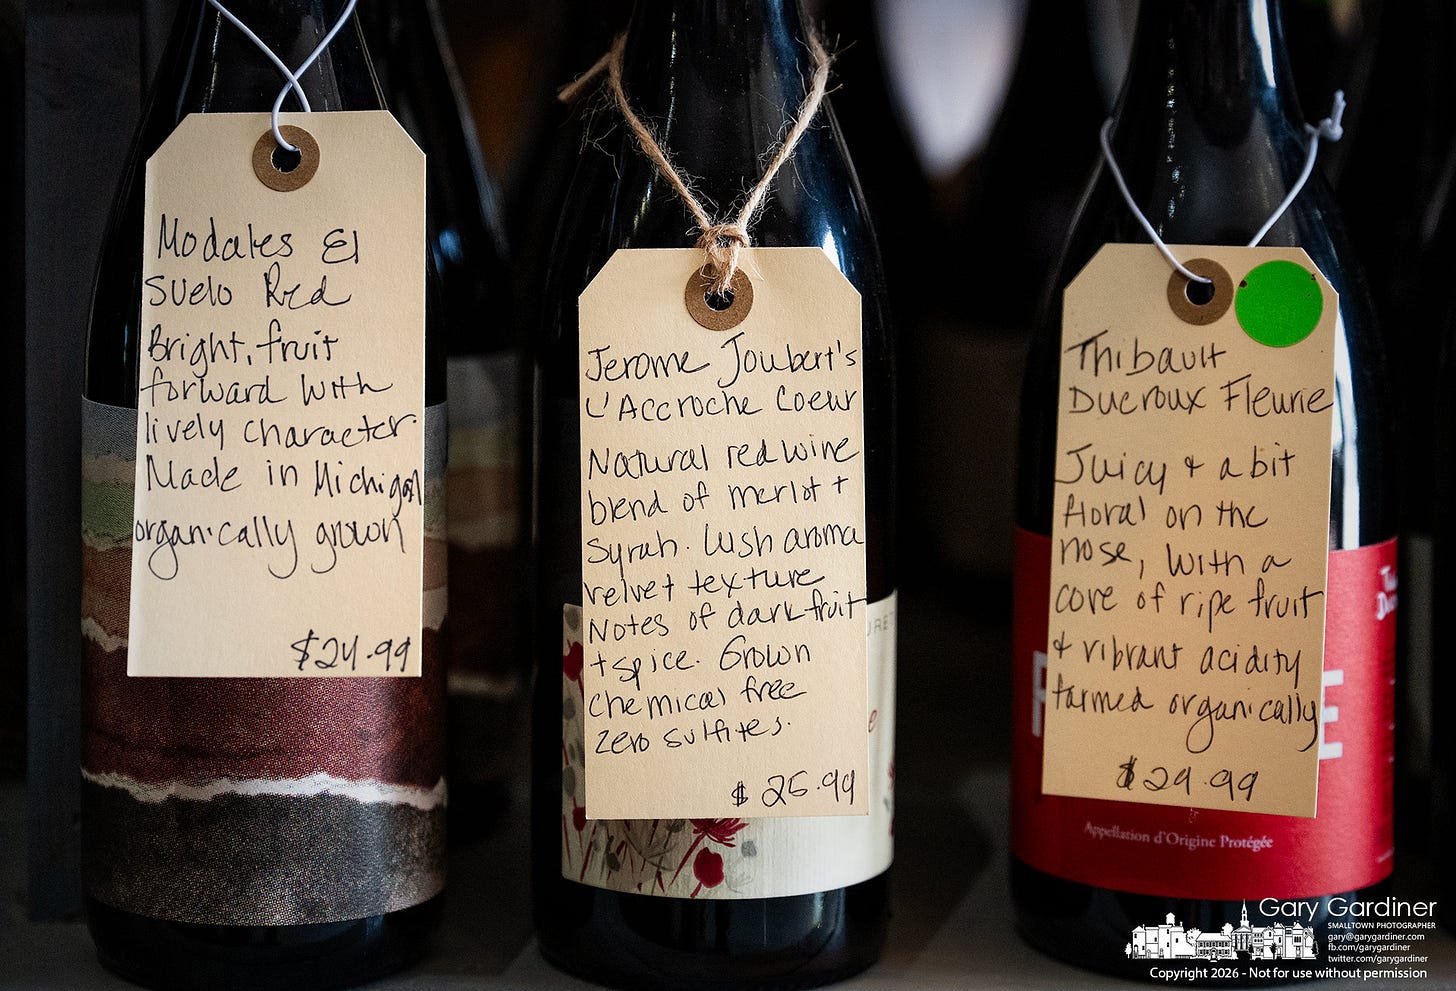 Modales El
Suelo Red
Bright, fruit
forward with
lively character.
Made in Michigan
organically grown
$24.99
Jerome Joubert's
L'Accroche Coeur
Natural red wine
blend of merlot +
Syrah. Lush aroma
velvet texture
Notes of dark fruit
+ spice. Grown
chemical free
zero sulfites.
$25.99
Thibault
Ducroux Fleurie
Juicy + a bit
floral on the
nose, with a
core of ripe fruit
+ vibrant acidity
farmed organically
$29.99
Appellation d'Origine Protégée
Gary Gardiner
SMALLTOWN PHOTOGRAPHER
gary@garygardiner.com
fb.com/garygardiner
twitter.com/garygardiner
Copyright 2026 - Not for use without permission